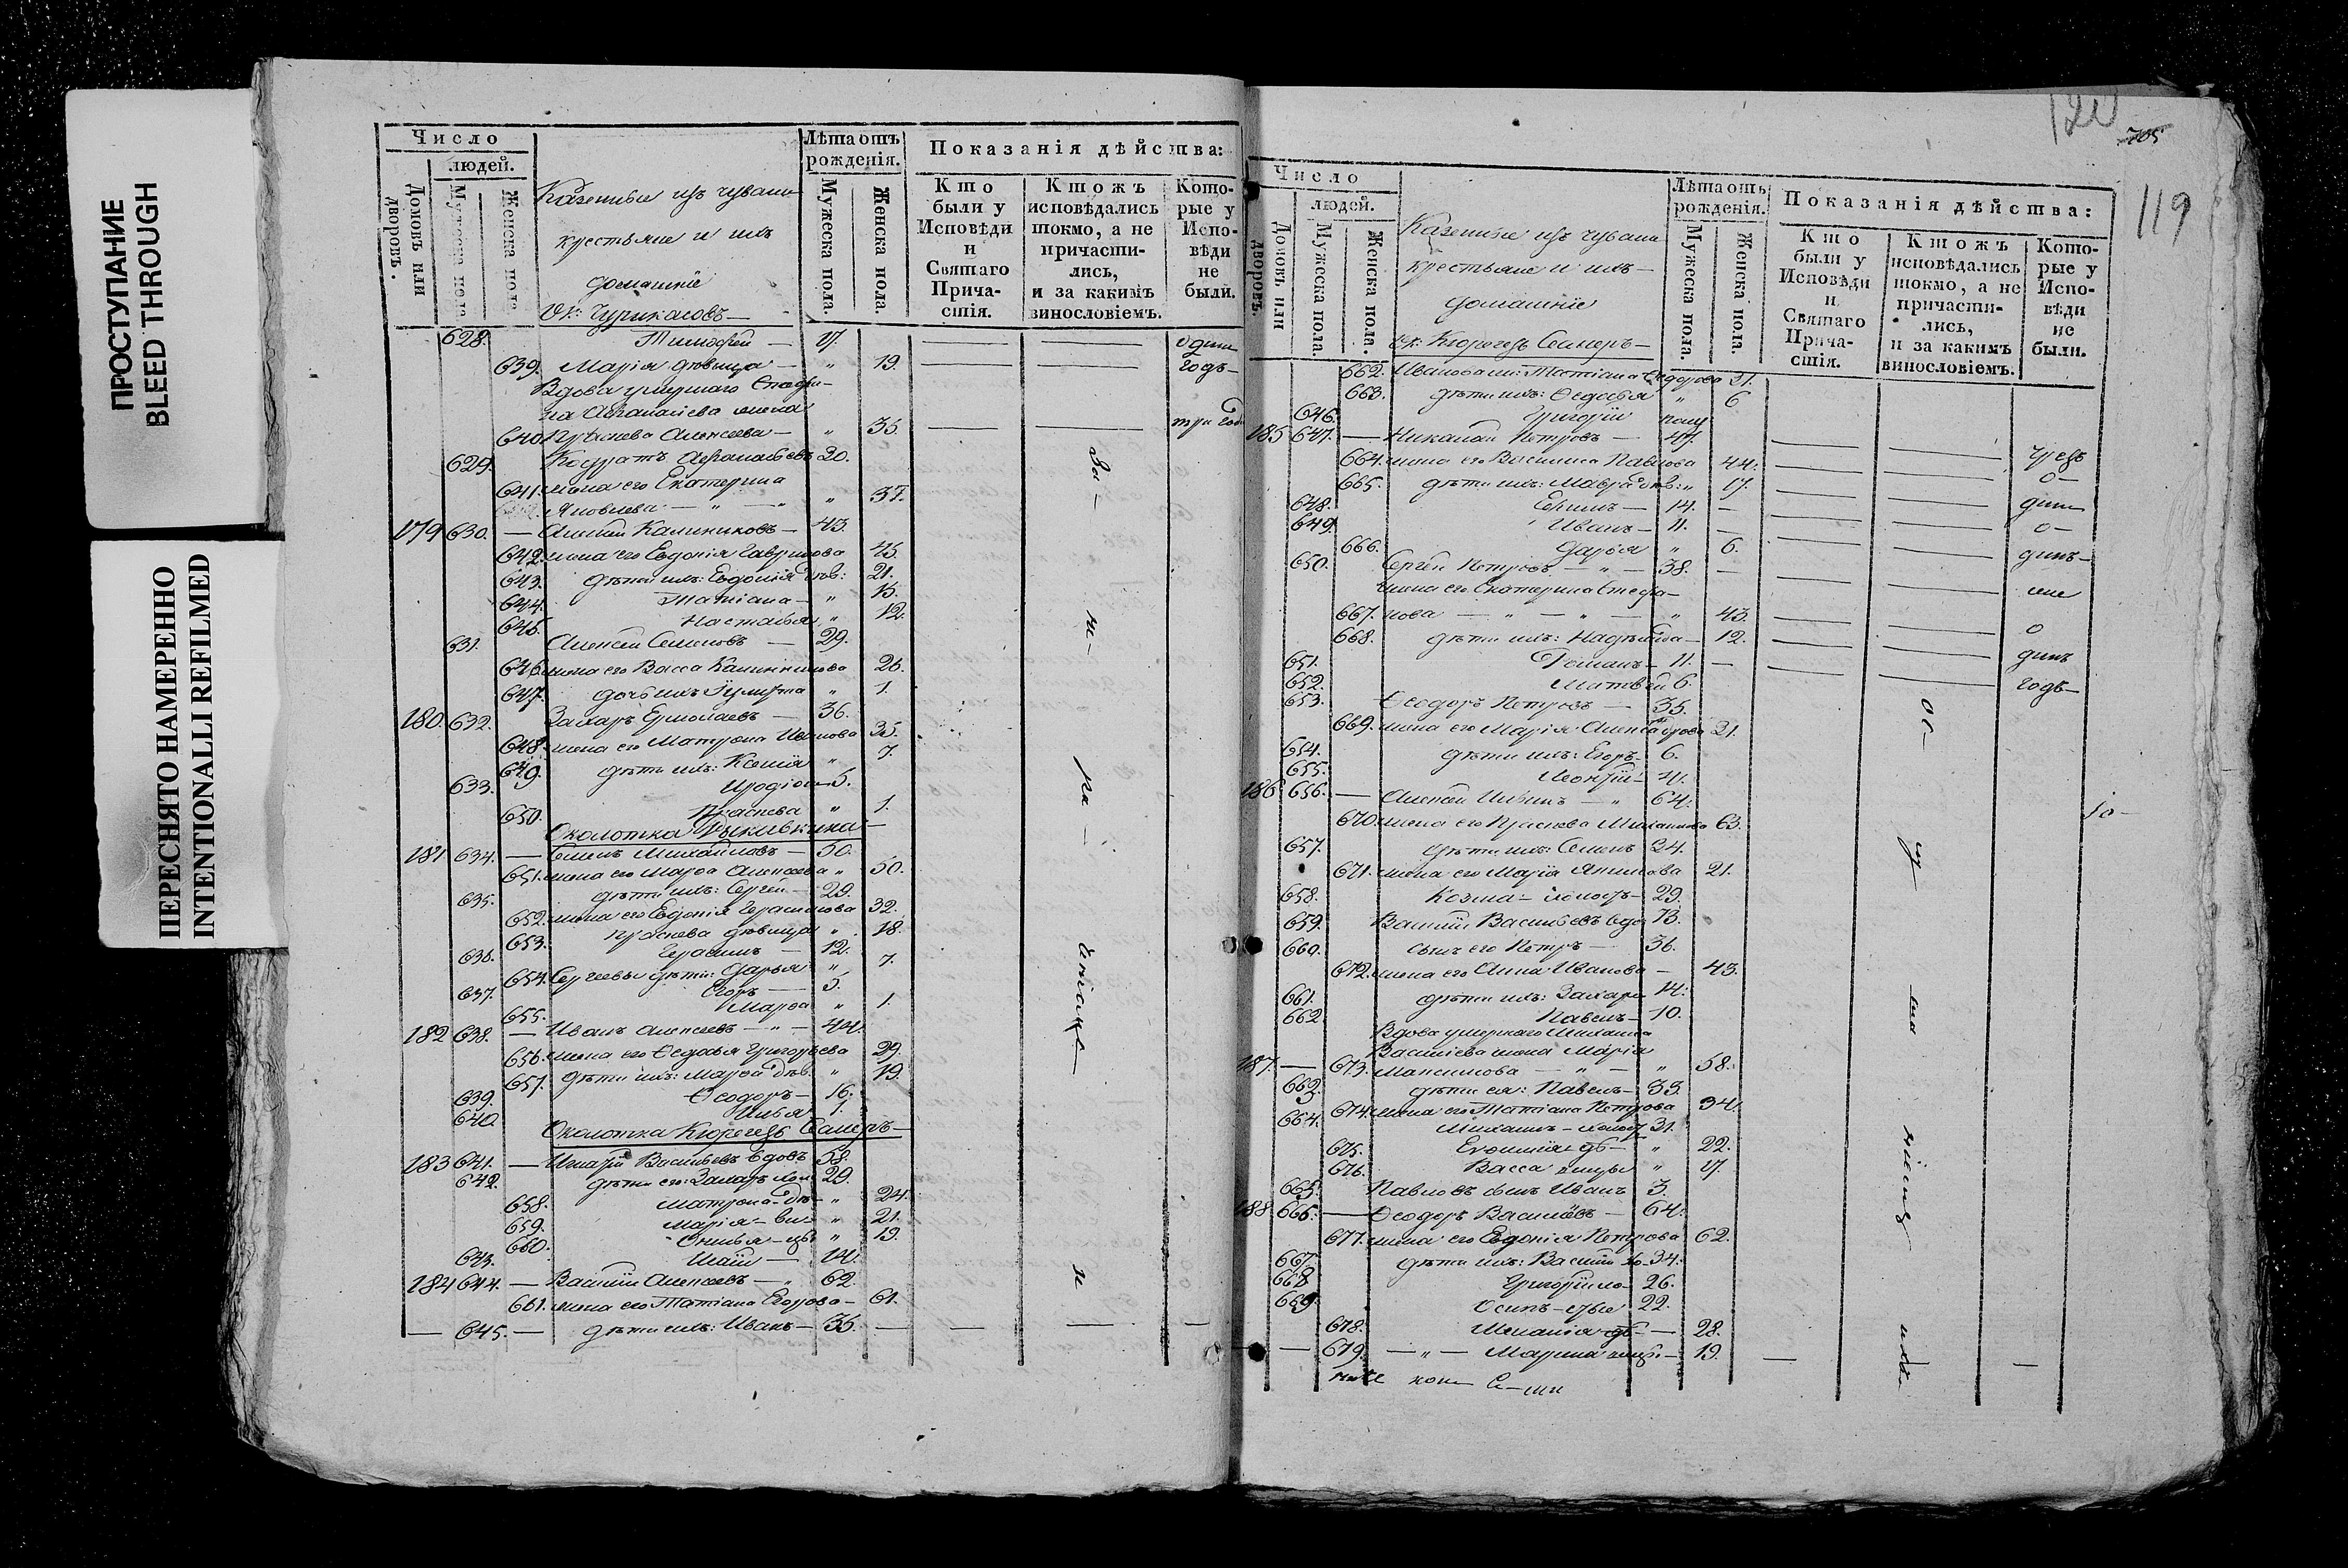 ПРОСТУПАНИЕ
BLEED THROUGH
ПЕРЕСНЯТО НАМЕРЕННО
INTENTIONALLI REFILMED
Число
людей.
Домовъ или дворовъ.
Мужеска пола.
Женска пола.
Казенные изъ чувашъ
крестьяне и ихъ
домашніе
Лѣта отъ рожденія.
Мужеска пола.
Женска пола.
Показанія дѣйства:
Кто были у Исповѣди и Святаго Причастія.
Ктожъ исповѣдались токмо, а не причастились, и за какимъ винословіемъ.
Которые у Исповѣди не были.
628. Тимофей — 17. один
639. Марія дѣвица — " 19. годъ —
Вдова умершаго
на Афанасіева жена
640 Праскева Алексеева — " 35. три года
629. Кодратъ Афанасьевъ 30.
641. жена его Екатерина
Яковлева — " — " " 37.
179 630. — Алексей Калиниковъ — 43.
642. жена его Евдокія Гаврилова 45.
643. дѣти ихъ: Евдокія дѣв: 21.
644. Татіана — " 15.
645. Настасья " 12.
631. Алексей Семеновъ — 29.
646. жена его Васса Калинникова 26.
647. дочь ихъ Улита " 1.
180. 632. Захаръ Ермолаевъ — 36.
648. жена его Матрона Иванова 35.
649. дѣти ихъ: Ксенія " 7.
633. Иродіонъ 5.
650. Праскева " 1.
Околотка
181 634. — Семенъ Михайловъ — 50.
651. жена его Марфа Алексеева " 50.
635. дѣти ихъ: Сергей — 29.
652. жена его Евдокія Герасимова 32.
653. Праскева дѣвица " 18.
636. Герасимъ — 12.
654. Сергеевы дѣти: Дарья " 7.
637. Егоръ — 5.
655. Марфа " 1.
182 638. — Иванъ Алексеевъ — " — 44.
656. жена его Ѳедосья Григорьева 29.
657. дѣти ихъ: Марфа дѣв. " 19.
639. Ѳеодоръ — 16.
640. Илья 1.
Околотка Кюрегезь Санеръ —
183 641. — Игнатій Васильевъ вдовъ 58.
642. дѣти его: Захаръ хол: 29.
658. Матрона дѣ — " 24.
659. Марія — ви — " 21.
660. Акилья — цы " 19.
643. 14.
184 644. — Василій Алексеевъ — " 62.
661. жена его Татіана Егорова — 61.
— 645. — дѣти ихъ: Иванъ — 35. —
120
705
119
Число
людей.
Домовъ или дворовъ.
Мужеска пола.
Женска пола.
Казенные изъ чувашъ
крестьяне и ихъ —
домашніе
ок: Кюрегезь Санеръ —
Лѣта отъ рожденія.
Мужеска пола.
Женска пола.
Показанія дѣйства:
Кто были у Исповѣди и Святаго Причастія.
Ктожъ исповѣдались токмо, а не причастились, и за какимъ винословіемъ.
Которые у Исповѣди не были.
662. Иванова ж: Татіана Ѳедорова 31.
663. дѣти ихъ: Ѳедосья " 6
646. Григорій
185 647. — Николай Петровъ — 47.
664. жена его Василиса Павлова 44.
665. дѣти ихъ: Мавра дѣв: " 17.
648. Ефимъ — 14.
649. Иванъ — 11.
666. Дарья " 6.
650. Сергей Петровъ — " — 38.
жена его Екатерина Стефа —
667. нова — " — " — " 43.
668. дѣти ихъ: Надежда — 12.
651. Романъ — 11.
652. Матвей 6.
653. Ѳеодоръ Петровъ — 35.
669. жена его Марія Александрова 31.
654. дѣти ихъ: Егоръ — 6.
655. Леонтій — 4.
186 656. — Алексей Ильинъ — " 64.
670. жена его Праскева Михайлова 63.
657. дѣти ихъ: Семенъ 24.
671. жена его Марія Якимова 21.
658. Козма — холостъ — 29.
659. Василій Васильевъ вдов 73.
660. сынъ его Петръ — 36.
672. жена его Анна Иванова — 43.
661. дѣти ихъ: Захаръ 14.
662. Павелъ — 10.
Вдова умершаго Михаила
Васильева жена Марія
187. — 673. Максимова — " — " 58.
663. дѣти ея: Павелъ — 33.
674. жена его Татіана Петрова 34.
664. Михаилъ — холост 31.
675. Евфимія дѣ — " 22.
676. Васса вицы " 17.
665. Павловъ сынъ Иванъ 3.
188 666. — Ѳеодоръ Васильевъ — 64.
677. жена его Евдокія Петрова 62.
667. дѣти ихъ: Василій хо — 34.
668 Григорій ло — 26.
669. Осипъ — стые 22.
678. Меланія дѣ — — 28.
679. — " — Марина вицы — 19.